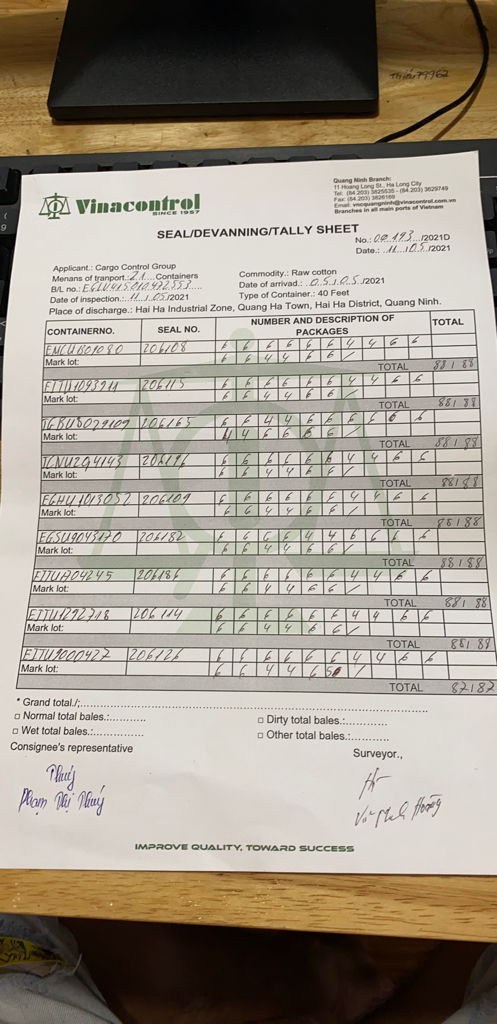 Vinacontrol
SINCE 1957
Quang Ninh Branch:
11 Hoang Long St., Ha Long City
Tel: (84.203) 3825535 - (84.203) 3629749
Fax: (84.203) 3826169
Email: vncquangninh@vinacontrol.com.vn
Branches in all main ports of Vietnam
SEAL/DEVANNING/TALLY SHEET
No.: 02193 /2021D
Date.: 11.05 /2021
Applicant.: Cargo Control Group
Commodity.: Raw cotton
Menans of tranport.: 21 Containers
Date of arrivad.: 05.05 /2021
B/L no.: EGLV415010422553
Type of Container.: 40 Feet
Date of inspection.: 11.05/2021
Place of discharge.: Hai Ha Industrial Zone, Quang Ha Town, Hai Ha District, Quang Ninh.
CONTAINERNO. SEAL NO. NUMBER AND DESCRIPTION OF PACKAGES TOTAL
206108 6 6 6 6 6 6 4 4 6 6
Mark lot: 6 6 4 4 6 6 /
TOTAL 88 / 88
206115 6 6 6 6 6 6 4 4 6 6
Mark lot: 6 6 4 4 6 6 /
TOTAL 88 / 88
106165 6 6 4 4 6 6 6 6 6 6
Mark lot: 4 4 6 6 6 6 /
TOTAL 88 / 88
TCNU294143 206196 6 6 6 6 6 6 4 4 6 6
Mark lot: 6 6 4 4 6 6 /
TOTAL 88 / 88
EGHU1013057 206109 6 6 6 6 6 6 4 4 6 6
Mark lot: 6 6 4 4 6 6 /
TOTAL 88 / 88
EGSU9043170 206182 6 6 6 6 4 4 6 6 6 6
Mark lot: 6 6 4 4 6 6 /
TOTAL 88 / 88
206186 6 6 6 6 6 6 4 4 6 6
Mark lot: 6 6 4 4 6 6 /
TOTAL 88 / 88
EITU1292718 206114 6 6 6 6 6 6 4 4 6 6
Mark lot: 6 6 4 4 6 6 /
TOTAL 88 / 88
EITU9000427 206126 6 6 6 6 6 6 4 4 6 6
Mark lot: 6 6 4 4 6 5 /
TOTAL 87 / 87
* Grand total./;
□ Normal total bales.:
□ Dirty total bales.:
□ Wet total bales.:
□ Other total bales.:
Consignee's representative
Surveyor.,
Thúy
Phạm Thị Thúy
IMPROVE QUALITY, TOWARD SUCCESS